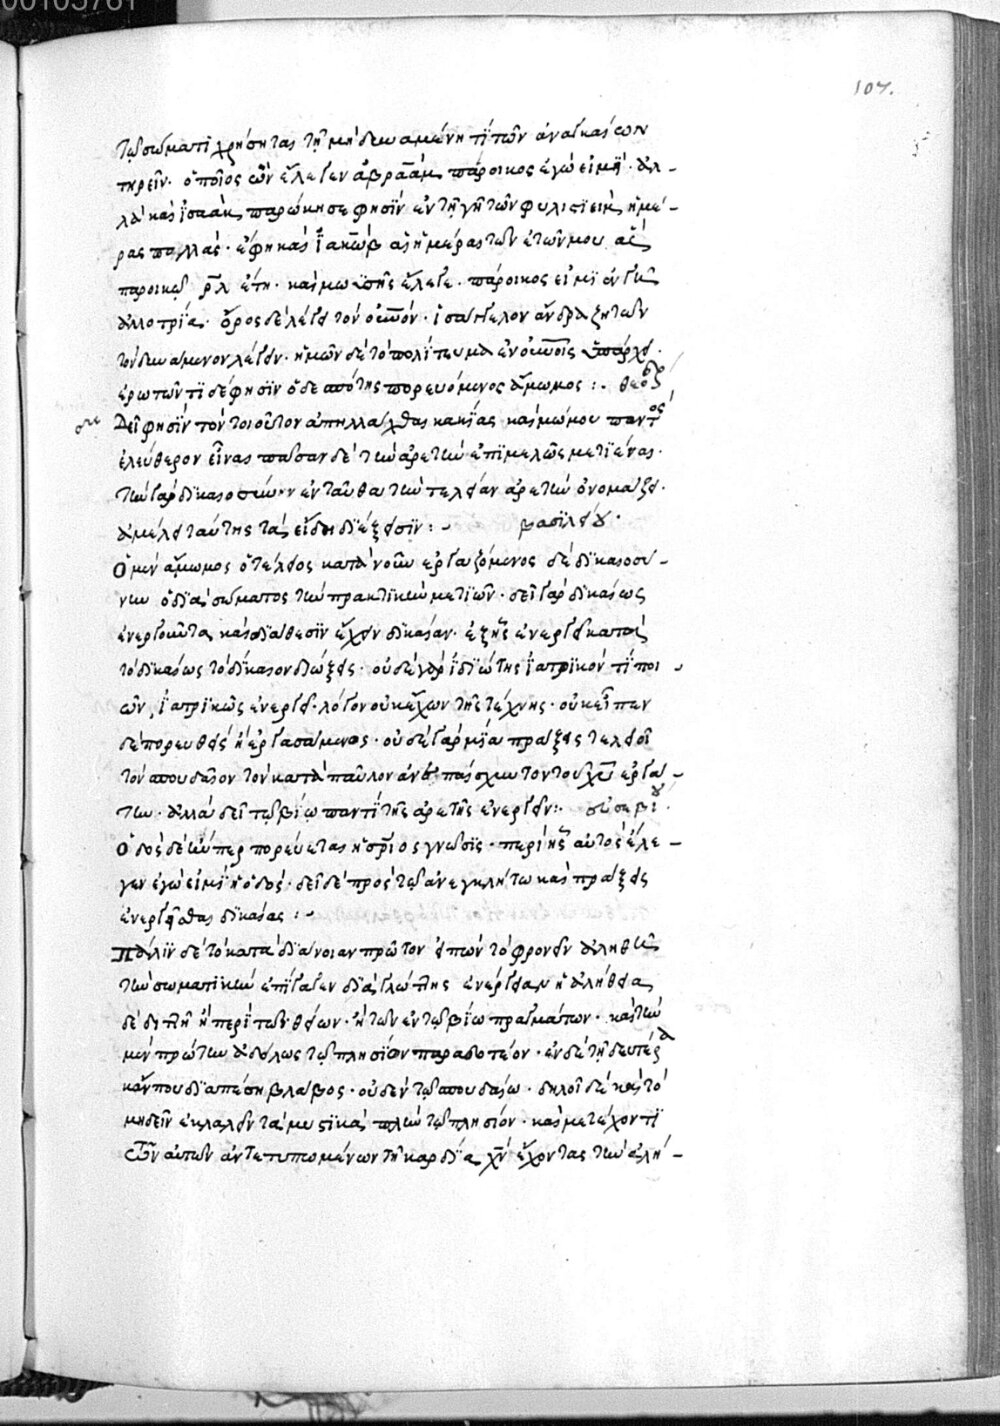 00105761
107.
τῷ σώματι χρήσηται τῇ μηδὲν ἀμώνη τί τῶν ἀναγκαίων
τηρεῖν· ὁποῖος ὢν ἔλεγεν ἀβραάμ, πάροικος ἐγώ εἰμι· ἀλ-
λὰ καὶ ἰσαὰκ παρώκησε φησὶν ἐν τῇ γῇ τῶν φυλιστιεὶμ ἡμέ-
ρας πολλάς· ἔφη καὶ ἰακὼβ αἱ ἡμέραι τῶν ἐτῶν μου ἃς
παροικῶ ρλ ἔτη· καὶ μωϋσῆς ἔλεγε· πάροικος εἰμὶ ἐν γῇ
ἀλλοτρίᾳ· ὄρος δὲ λέγει τὸν οὐνόν· ἰσάγγελον ἄνδρα ζητῶν
τὸν δυνάμενον λέγειν· ἡμῶν δὲ τὸ πολίτευμα ἐν οὐνοῖς ὑπάρχει·
ἐρωτῶντι δέ φησὶν ὁ δὲ ἀπό της πορευόμενος ἄμωμος :· θεοδρ
Δεῖ φησὶν τὸν τοιοῦτον ἀπηλλάχθαι κακίας καὶ μώμου παντὸς
ἐλεύθερον εἶναι πᾶσαν δὲ τὴν ἀρετὴν ἐπιμελῶς μετιέναι·
τὴν γὰρ δικαιοσύνην ἐνταῦθα τὴν τελείαν ἀρετὴν ὀνομάζει·
ἀμέλει ταύτης τὰ εἴδη διέξεισιν :· βασιλείου·
Ὁ μὲν ἄμωμος ὁ τέλειος κατὰ νοῦν ἐργαζόμενος δὲ δικαιοσύ-
νην ὁ διὰ σώματος τὴν πρακτικὴν μετιών· δεῖ γὰρ δικαίως
ἐνεργοῦντα, καὶ διάθεσιν ἔχειν δικαίαν· ἑξῆς ἐνεργεῖ κατὰ
τὸ δικαίως τὸ δίκαιον διώξεις· οὐδὲ γὰρ ἰδιώτης ἰατρικόν τι ποι-
ῶν, ἰατρικῶς ἐνεργεῖ· λόγον οὐκ ἔχων τῆς τέχνης· οὐκ εἶπεν
δὲ πορευθεὶς ἢ ἐργασάμενος· οὐδὲ γὰρ μία πρᾶξις τελειοῖ
τὸν σπουδαῖον τὸν κατὰ παῦλον ἀνεπαίσχυντον τοῦ χῦ ἐργά-
την· ἀλλὰ δεῖ τῷ βίῳ παντὶ τῆς ἀρετῆς ἐνεργεῖν :· εὐσεβίου·
Ὁδὸς δὲ ἣν περ πορεύεται ἡ σπριος γνῶσις· περὶ ἧς αὐτὸς ἔλε-
γεν ἐγώ εἰμι ἡ ὁδός· δεῖ δὲ πρὸς τῷ ἀνεγκλήτῳ καὶ πράξεις
ἐνεργεῖσθαι δικαίας :·
Πάλιν δὲ τὸ κατὰ διάνοιαν πρῶτον εἰπὼν τὸ φρονεῖν ἀληθῆ
τὴν σωματικὴν ἐπήγαγεν διὰ γλώττης ἐνέργειαν ἡ ἀλήθεια
δὲ διπλῆ ἢ περὶ τῶν θείων· ἢ τῶν ἐν τῷ βίῳ πραγμάτων· καὶ τὴν
μὲν πρώτην ἀδόλως τῷ πλησίον παραδοτέον· ἐν δὲ τῇ δευτέρᾳ
κἄν που διαπέσῃ βλάβος· οὐδὲν τῷ σπουδαίῳ· δηλοῖ δὲ καὶ τὸ
μηδεῖν ἐκλαλεῖν τὰ μυστικὰ πλὴν τῷ πλησίον· καὶ μετέχοντι
τῶν αὐτῶν ἀντετυπωμένων τῇ καρδίᾳ χρὴ ἔχοντας τὴν ἀλή-